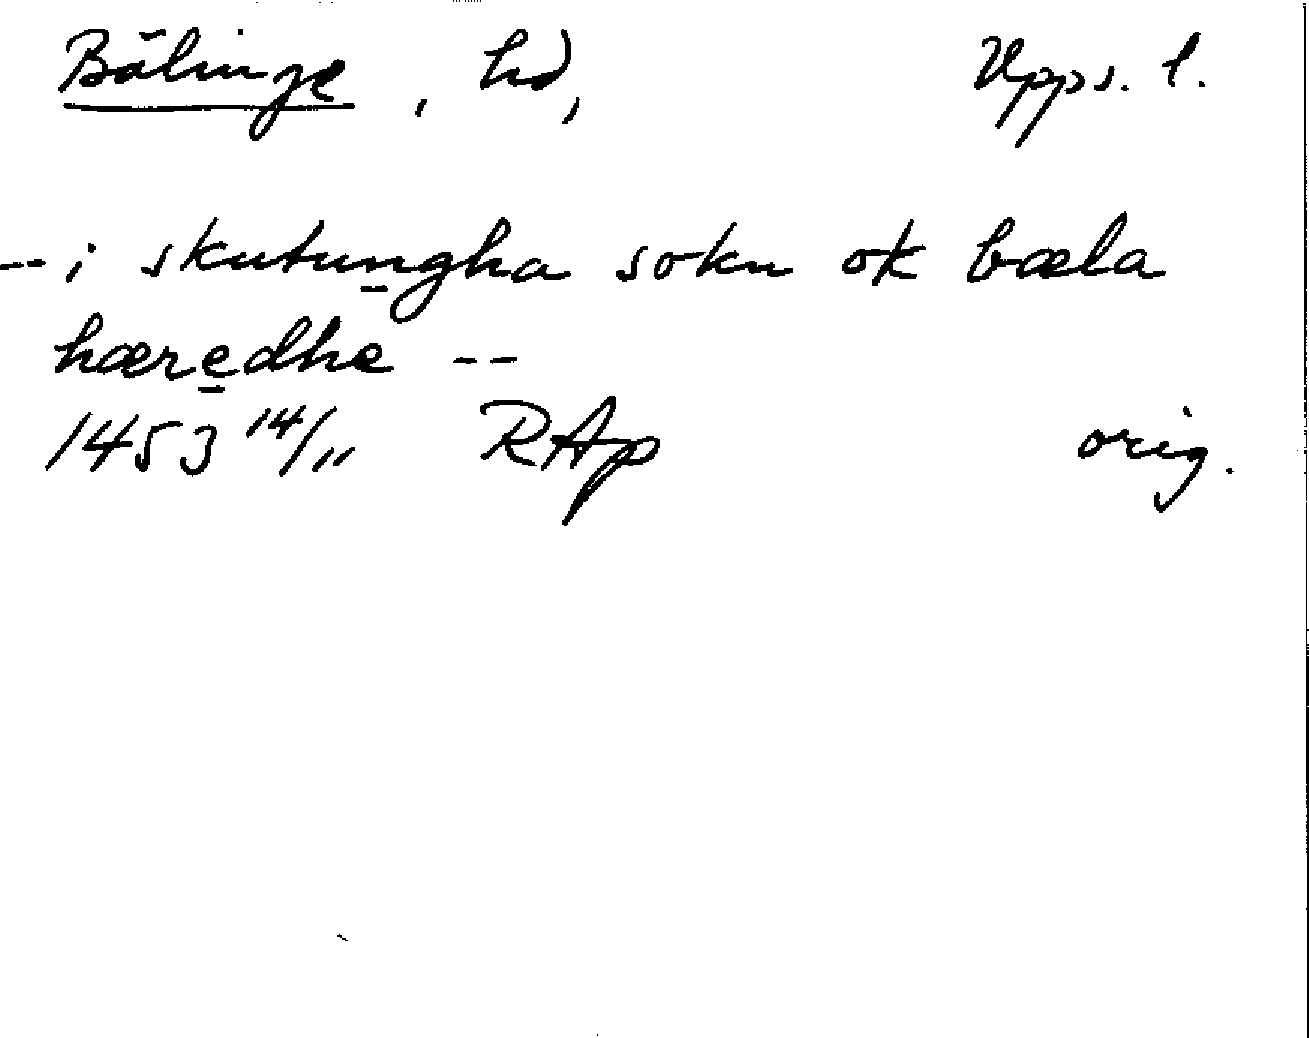 Bälinge, hd, Upps. l.
-- i skutungha sokn ok bæla
hæredhe --
1453 14/11 RAp orig.